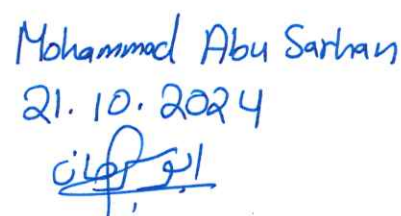 Mohammad Abu Sarhan
21.10.2024
ابو سرحان